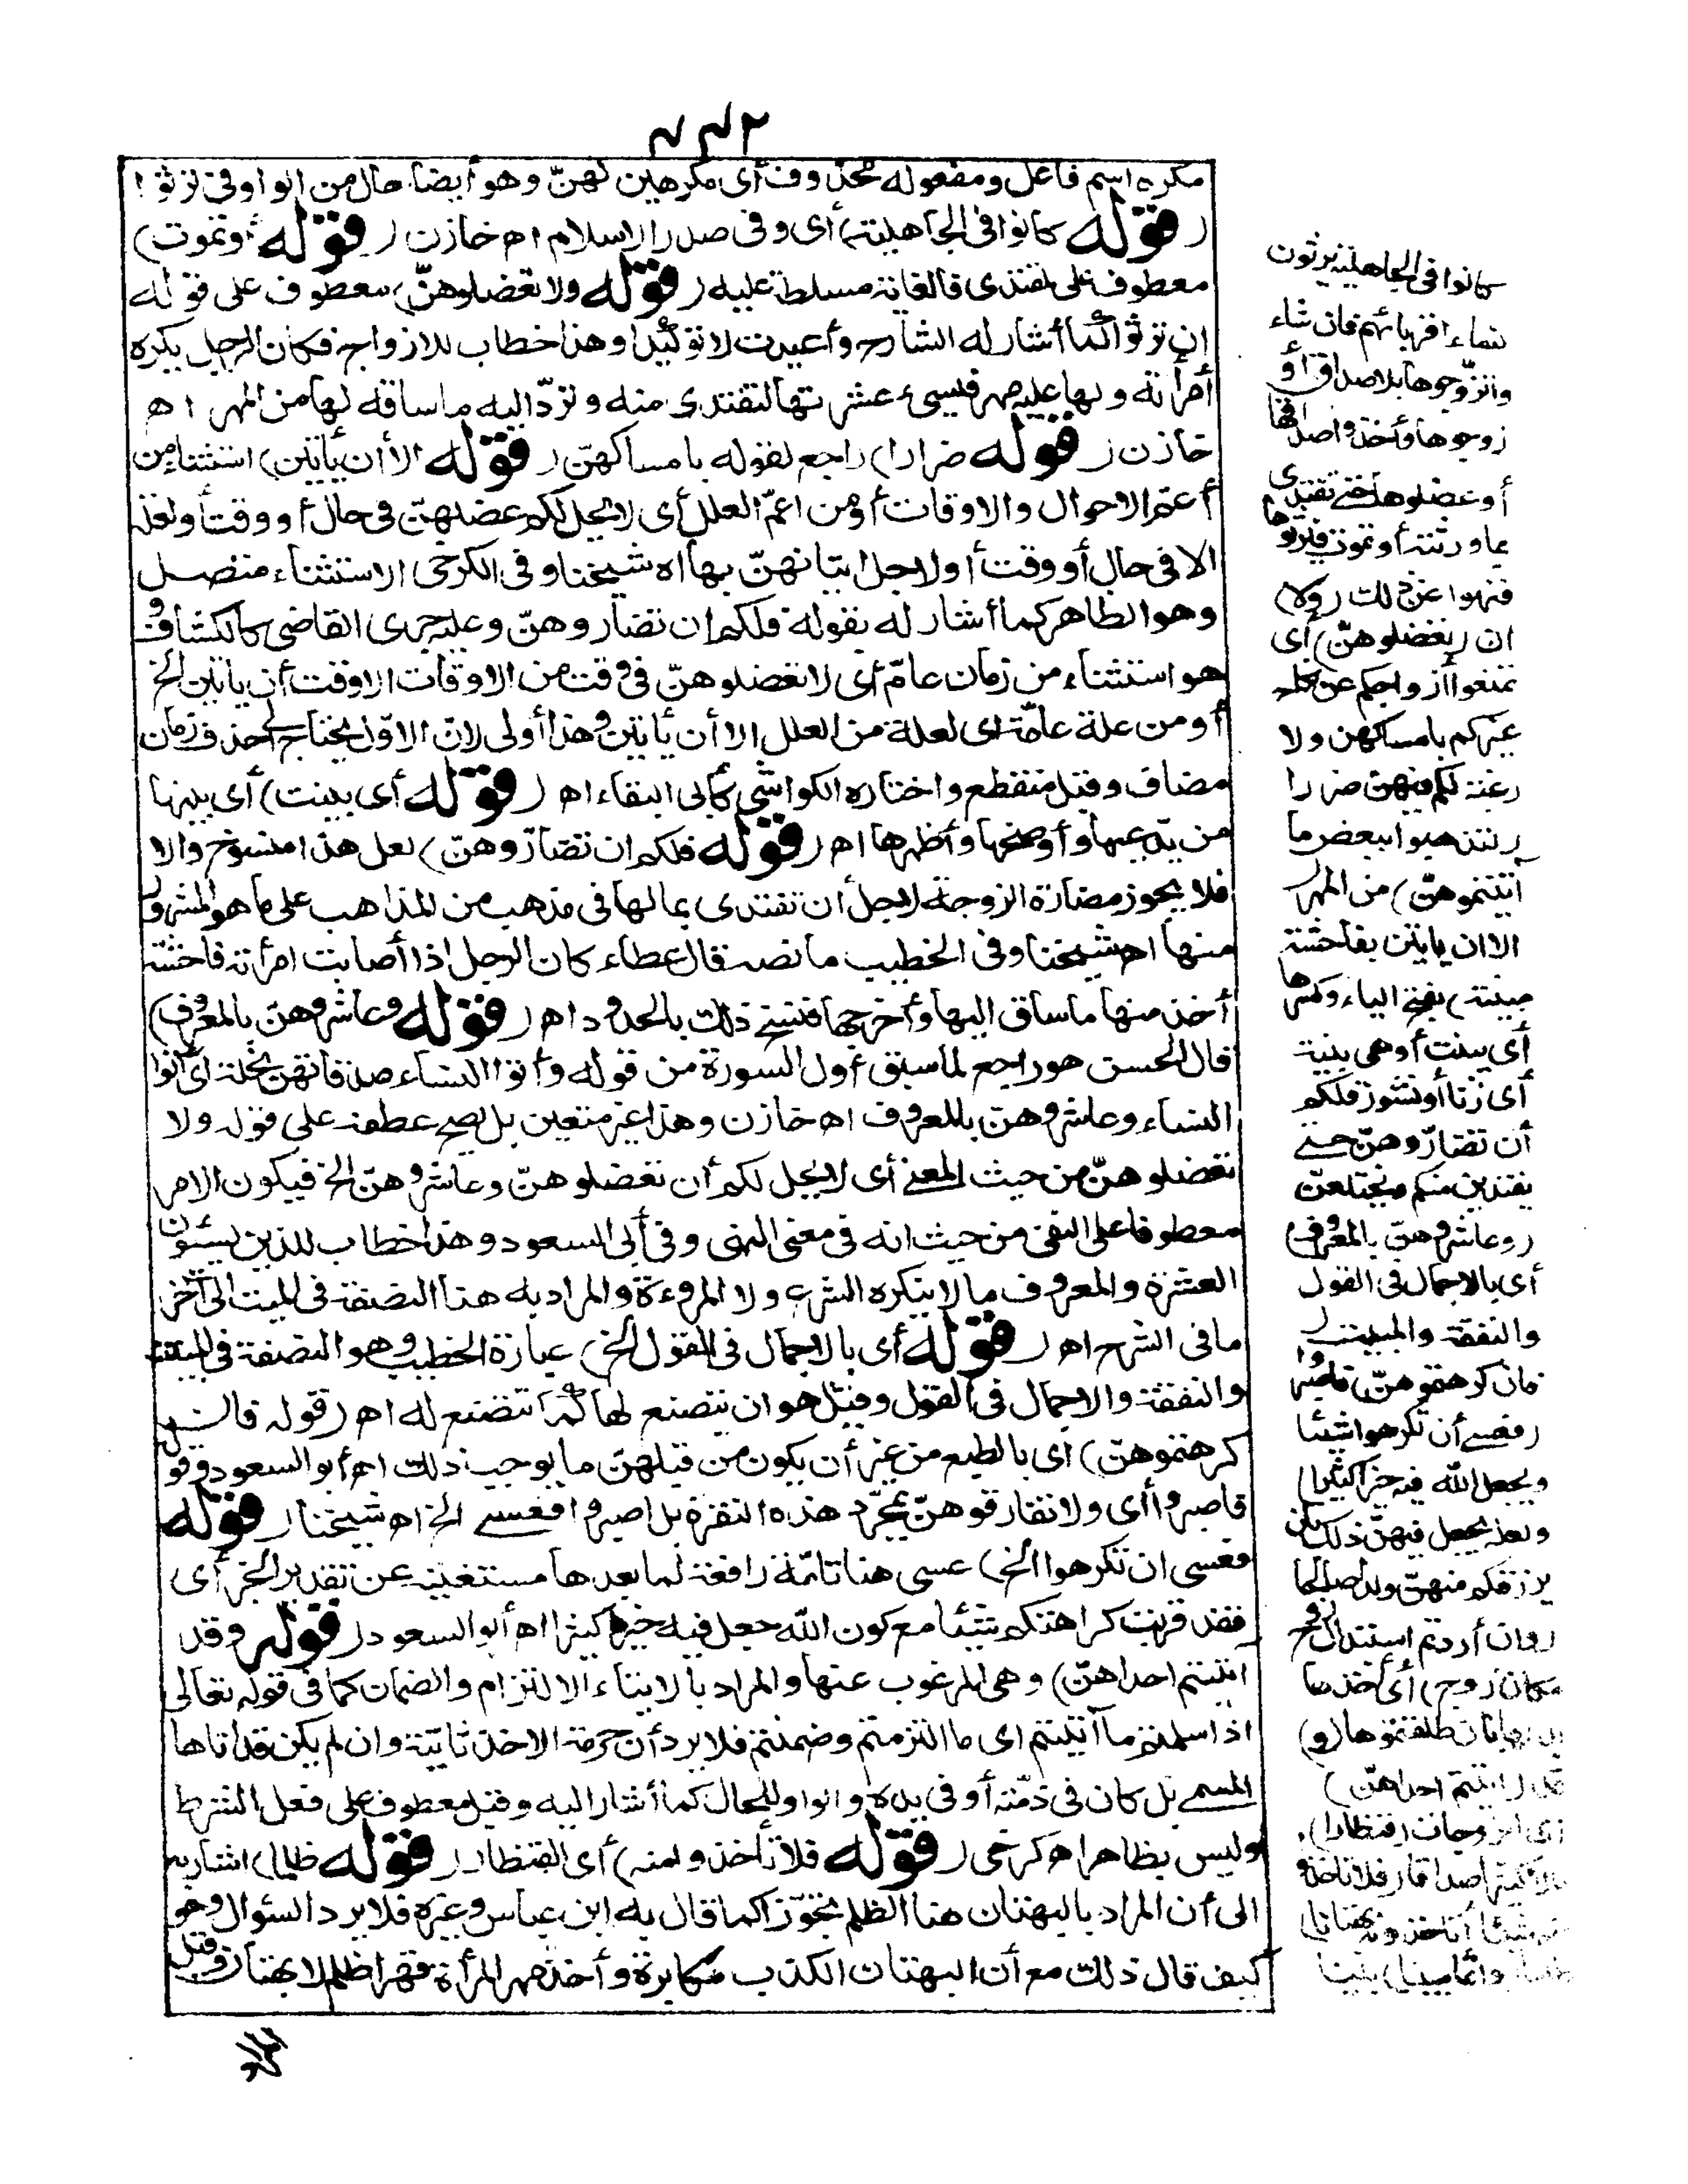 مكره اسم فاعل ومفعوله محذوف أى مكرهين لهنّ وهو أيضا حال من الواو فى ترثوا
(قوله كانوا فى الجاهلية) أى وفى صدر الاسلام اه خازن (قوله أو تموت)
معطوف على تفتدى فالغاية مسلطة عليه (قوله ولا تعضلوهنّ) معطوف على قوله
ان ترثوا كما أشار له الشارح وأعيدت لا توكيدا وهذا خطاب للازواج فكان الرجل يكره
امرأته ولها عليه مهر فيسىء عشرتها لتفتدى منه وتردّ اليه ما ساقه لها من المهر اه
خازن (قوله ضرارا) راجع لقوله بامساكهنّ (قوله الا أن يأتين) استثناء من
أعمّ الاحوال والاوقات أو من اعمّ العلل أى لا يحل لكم عضلهنّ فى حال أو وقت أو لعلة
الا فى حال أو وقت أو لاجل اتيانهنّ بها اه شيخنا وفى الكرخى الاستثناء متصل
وهو الظاهر كما أشار له بقوله فلكم ان تضاروهنّ وعليه جرى القاضى كالكشاف و
هو استثناء من زمان عامّ أى لا تعضلوهنّ فى وقت من الاوقات الا وقت أن يأتين الخ
أو من علة عامّة اى لعلة من العلل الا أن يأتين وهذا أولى لانّ الاوّل يحتاج الى حذف زمان
مضاف وقيل منقطع واختاره الكواشى كأبى البقاء اه (قوله أى بينت) أى بينها
من يدّعيها وأوضحها وأظهرها اه (قوله فلكم ان تضارّوهنّ) لعل هذا منسوخ والا
فلا يجوز مضارة الزوجة لاجل أن تفتدى بمالها فى مذهب من المذاهب على ما هو المشهور
منها اه شيخنا وفى الخطيب ما نصه قال عطاء كان الرجل اذا أصابت امرأته فاحشة
أخذ منها ما ساق اليها وأخرجها فنسخ ذلك بالحدود اه (قوله وعاشروهنّ بالمعروف)
قال الحسن هو راجع لما سبق أول السورة من قوله وأتوا النساء صدقاتهن نحلة أى أتوا
النساء وعاشروهن بالمعروف اه خازن وهذا غير متعين بل يصح عطفه على قوله ولا
تعضلوهنّ من حيث المعنى أى لا يحل لكم أن تعضلوهنّ وعاشروهنّ الخ فيكون الامر
معطوفا على النفى من حيث انه فى معنى النهى وفى أبى السعود وهذا خطاب للذين يسيئون
العشرة والمعروف ما لا ينكره الشرع ولا المروءة والمراد به هنا النصفة فى المبيت الى آخر
ما فى الشرح اه (قوله أى بالاجمال فى القول الخ) عبارة الخطيب وهو النصفة فى المبيت
والنفقة والاجمال فى القول وقيل هو ان يتصنع لها كما تتصنع له اه (قوله فان
كرهتموهنّ) اى بالطبع من غير أن يكون من قبلهنّ ما يوجب ذلك اه أبو السعود وقوله
فاصبروا أى ولا تفارقوهنّ بمجرّد هذه النفرة بل اصبروا فعسى الخ اه شيخنا (قوله
فعسى ان تكرهوا الخ) عسى هنا تامّة رافعة لما بعدها مستغنية عن تقدير الخبر أى
فقد قربت كراهتكم شيئا مع كون الله جعل فيه خيرا كثيرا اه أبو السعود (قوله وقد
اتيتم احداهنّ) وهى المرغوب عنها والمراد بالايتاء الالتزام والضمان كما فى قوله تعالى
اذا سلمتم ما آتيتم اى ما التزمتم وضمنتم فلا يرد أن حرمة الاخذ ثابتة وان لم يكن قد أتاها
المسمى بل كان فى ذمّته أو فى يده والواو للحال كما أشار اليه وقيل معطوف على فعل الشرط
وليس بظاهر اه كرخى (قوله فلا تأخذوا منه) أى القنطار (قوله ظلما) اشار به
الى أن المراد بالبهتان هنا الظلم تجوّزا كما قال به ابن عباس وغيره فلا يرد السئوال وهو
كيف قال ذلك مع أن البهتان الكذب مكابرة وأخذ مهر المرأة قهرا ظلم لا بهتان وقيل
كانوا فى الجاهلية يرثون
نساء اقربائهم فان شاء
وا تزوّجوها بلا صداق أو
زوجوها وأخذوا صداقها
أو عضلوها حتى تفتدى
بما ورثته أو تموت فيرثوها
فنهوا عن ذلك (ولا)
ان (تعضلوهنّ) أى
تمنعوا أزواجكم عن نكاح
غيركم بامساكهن ولا
رغبة لكم فيهن ضرارا
(لتذهبوا ببعض ما
آتيتموهنّ) من المهر
الا ان يأتين بفاحشة
مبينة) بفتح الياء وكسرها
أى بينت أو هى بينة
أى زنا أو نشوز فلكم
أن تضارّوهنّ حتى
يفتدين منكم ويختلعنّ
(وعاشروهنّ بالمعروف)
أى بالاجمال فى القول
والنفقة والمبيت (
فان كرهتموهنّ) فاصبروا
(فعسى أن تكرهوا شيئا
ويجعل الله فيه خيرا كثيرا)
ولعله يجعل فيهنّ ذلك بان
يرزقكم منهنّ ولدا صالحا
(وان أردتم استبدال زوج
مكان زوج) أى أخذها
بدلها بان طلقتموها (و)
قد (اتيتم احداهنّ)
أى الزوجات (قنطارا)
مالا كثيرا صداقا (فلا تأخذوا
منه شيئا أتأخذونه بهتانا)
ظلما (واثما مبينا) بينا